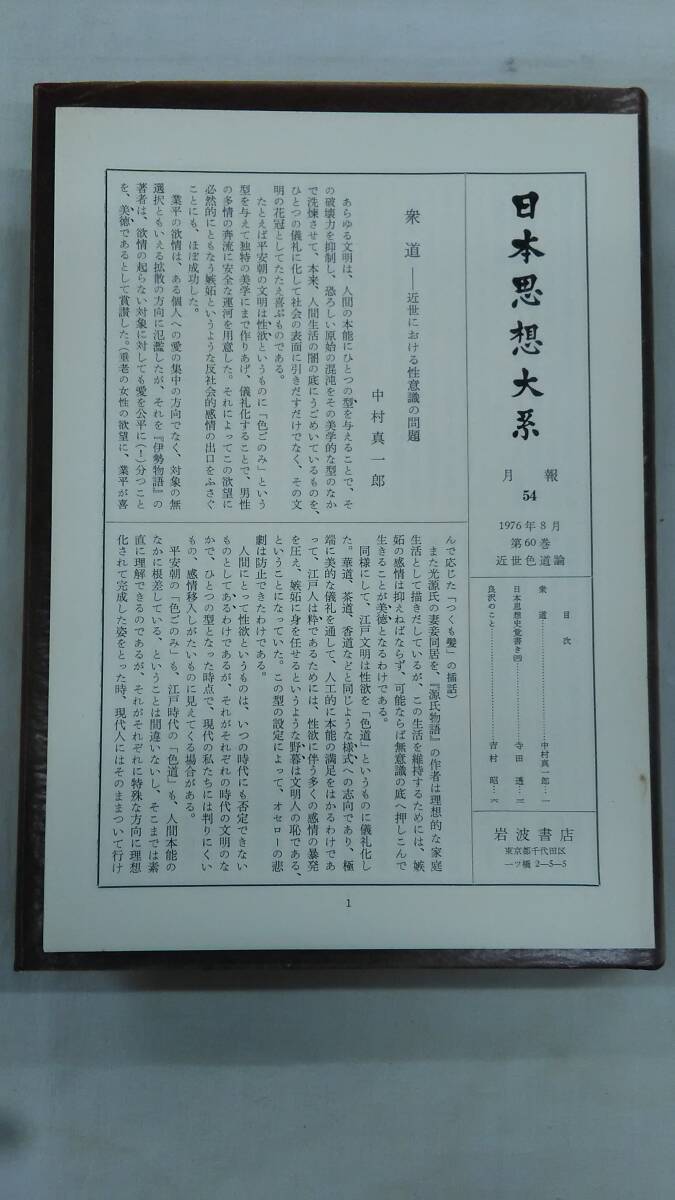 日本思想大系
月報
54
1976年8月
第60巻
近世色道論
目次
衆道……………………中村真一郎…一
日本思想史覚書き㈣……………寺田透…三
良沢のこと……………………吉村昭…六
岩波書店
東京都千代田区
一ツ橋2-5-5
衆道——近世における性意識の問題
中村真一郎
あらゆる文明は、人間の本能にひとつの型を与えることで、そ
の破壊力を抑制し、恐ろしい原始の混沌をその美学的な型のなか
で洗煉させて、本来、人間生活の闇の底にうごめいているものを、
ひとつの儀礼に化して社会の表面に引きだすだけでなく、その文
明の花冠としてたたえ喜ぶものである。
たとえば平安朝の文明は性欲というものに「色ごのみ」という
型を与えて独特の美学にまで作りあげ、儀礼化することで、男性
の多情の奔流に安全な運河を用意した。それによってこの欲望に
必然的にともなう嫉妬というような反社会的感情の出口をふさぐ
ことにも、ほぼ成功した。
業平の欲情は、ある個人への愛の集中の方向でなく、対象の無
選択ともいえる拡散の方向に氾濫したが、それを『伊勢物語』の
著者は、欲情の起らない対象に対しても愛を公平に(！)分つこと
を、美徳であるとして賞讃した。(重老の女性の欲望に、業平が喜
んで応じた「つくも髪」の挿話)
また光源氏の妻妾同居を、『源氏物語』の作者は理想的な家庭
生活として描きだしているが、この生活を維持するためには、嫉
妬の感情は抑えねばならず、可能ならば無意識の底へ押しこんで
生きることが美徳となるわけである。
同様にして、江戸文明は性欲を「色道」というものに儀礼化し
た。華道、茶道、香道などと同じような様式への志向であり、極
端に美的な儀礼を通して、人工的に本能の満足をはかるわけであ
って、江戸人は粋であるためには、性欲に伴う多くの感情の暴発
を圧え、嫉妬に身を任せるというような野暮は文明人の恥である、
ということになっていた。この型の設定によって、オセローの悲
劇は防止できたわけである。
人間にとって性欲というものは、いつの時代にも否定できない
ものとしてあるわけであるが、それがそれぞれの時代の文明のな
かで、ひとつの型となった時点で、現代の私たちには判りにくい
もの、感情移入しがたいものに見えてくる場合がある。
平安朝の「色ごのみ」も、江戸時代の「色道」も、人間本能の
なかに根差している、ということは間違いないし、そこまでは素
直に理解できるのであるが、それがそれぞれに特殊な方向に理想
化されて完成した姿をとった時、現代人にはそのままついて行け
1